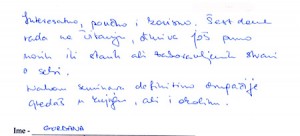 Interesatno, poučno i korisno. Šest dana
rada na čitanju, otkriva još puno
novih ili starih ali zaboravljenih stvari
o sebi.
Nakon seminara definitivno drugačije
gledaš u knjigu, ali i okolinu.
Ime - GORDANA